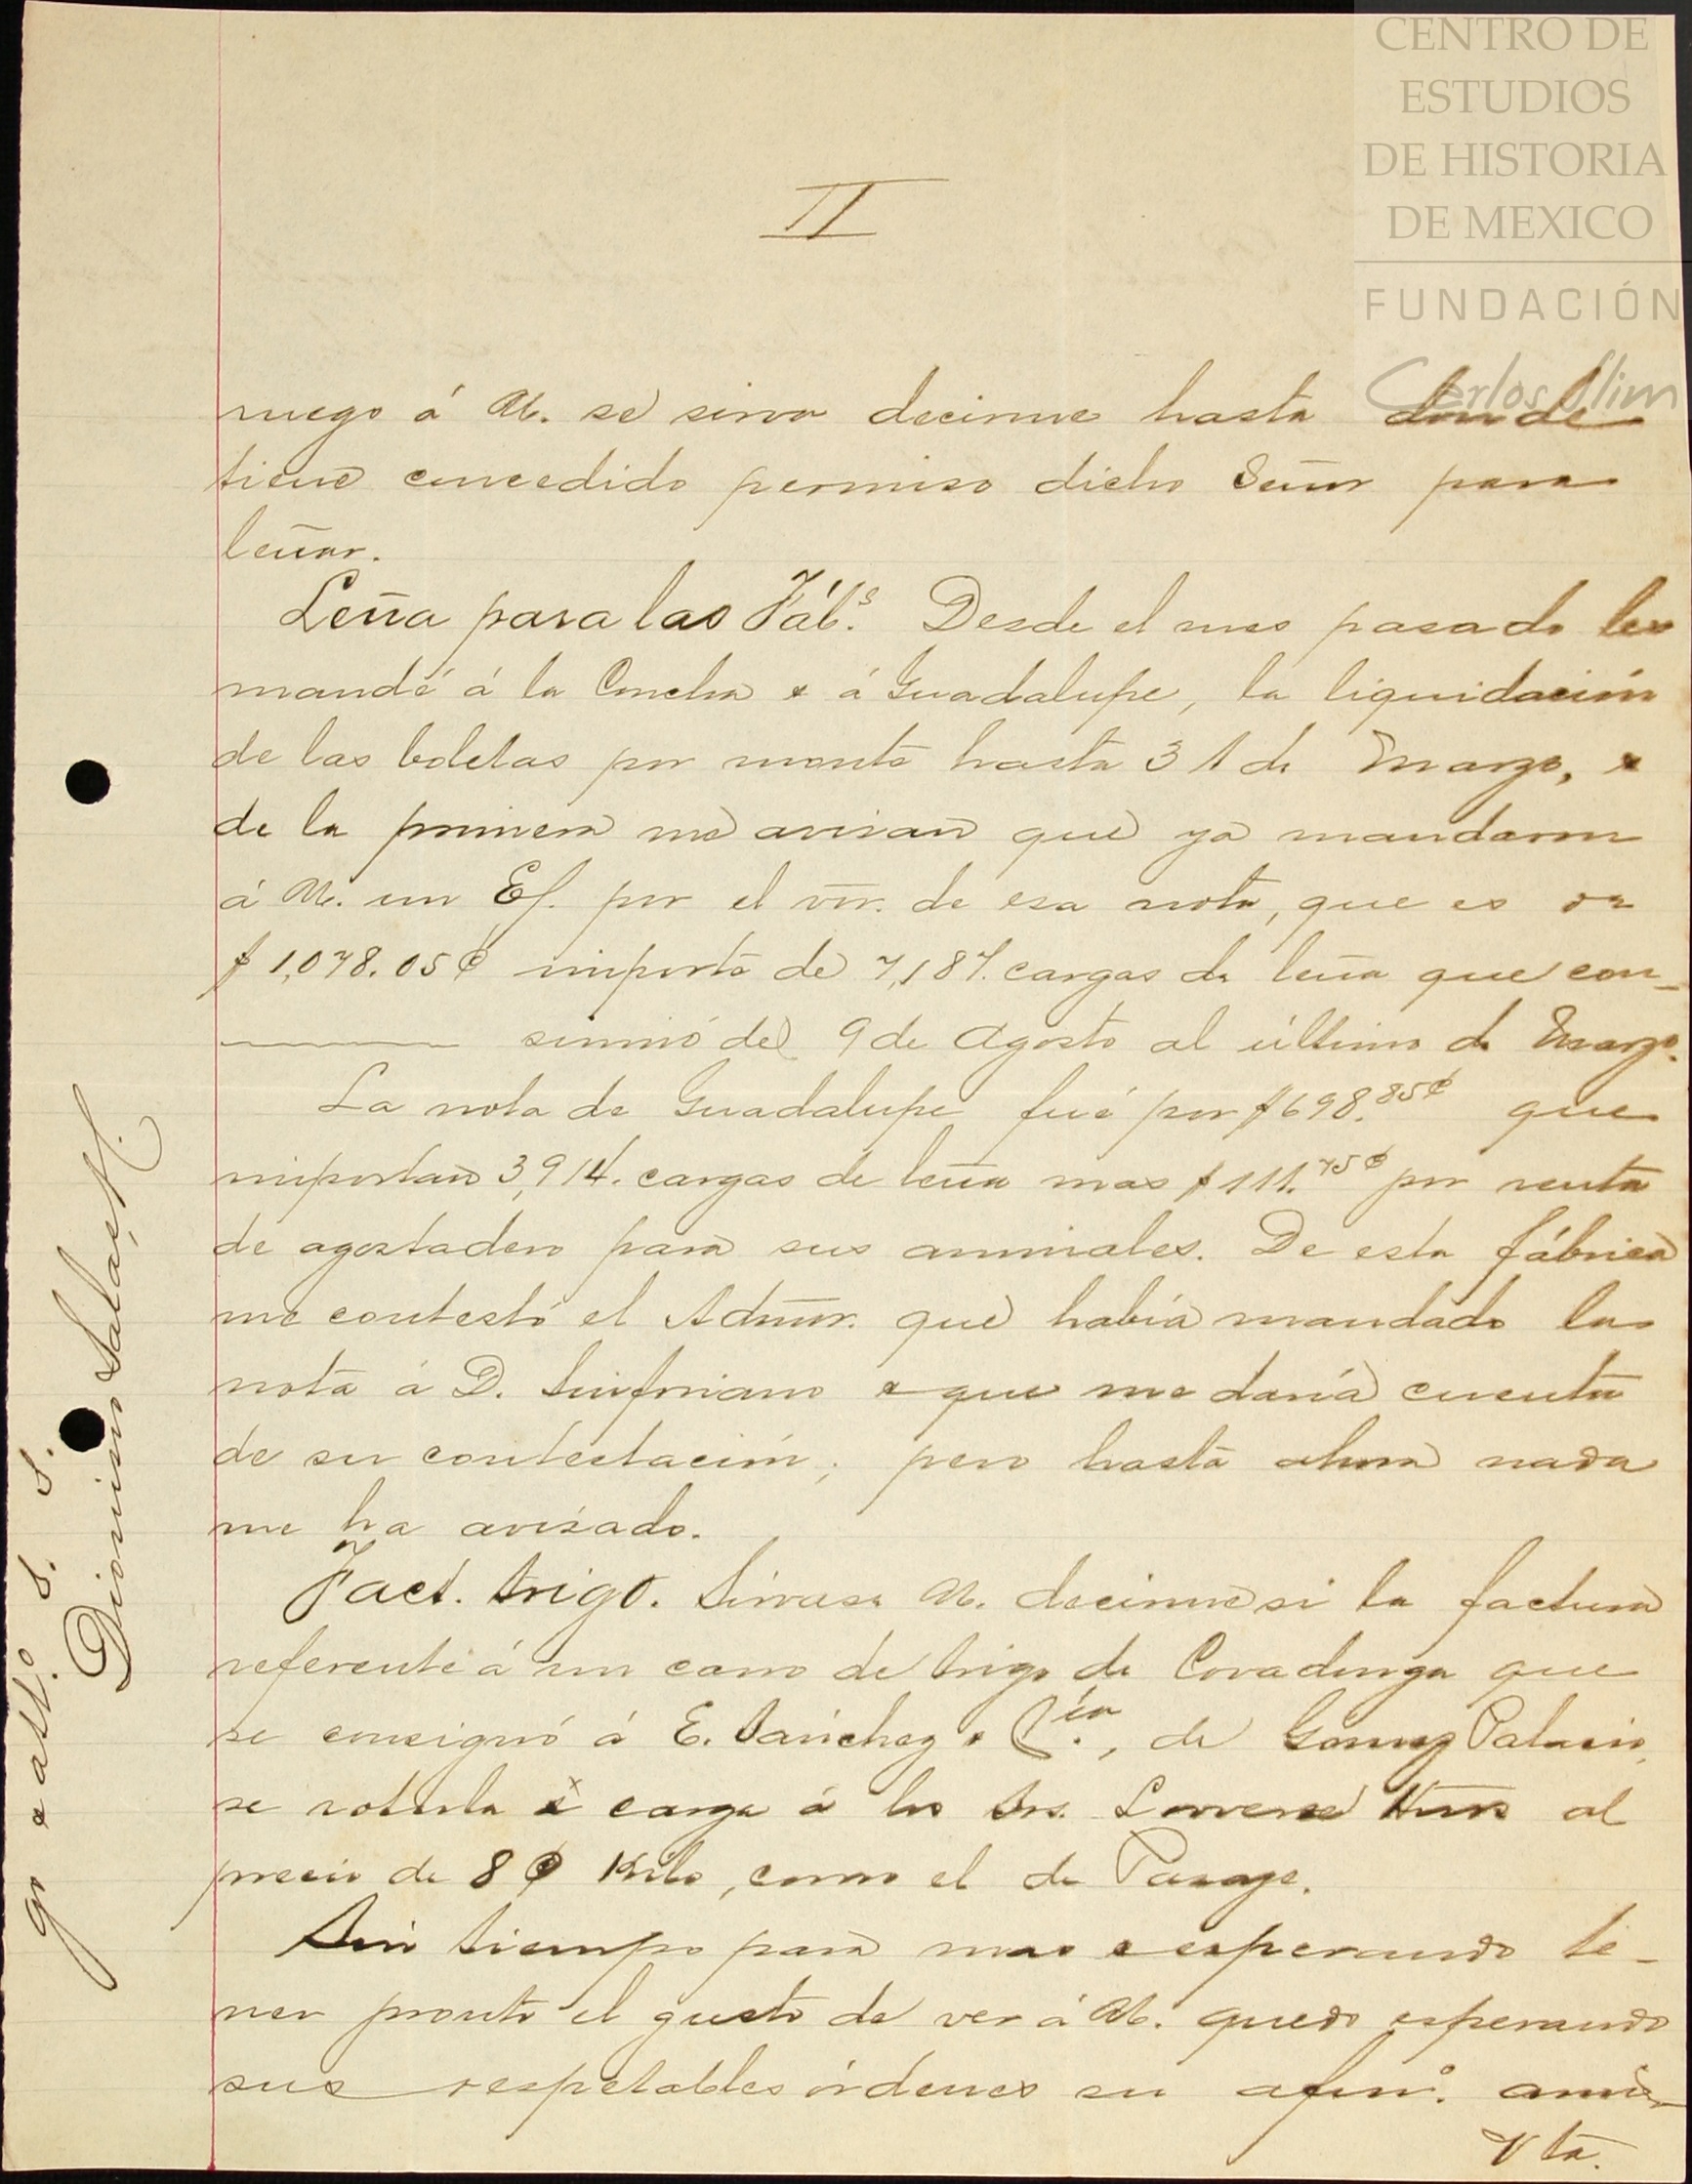 CENTRO DE
ESTUDIOS
DE HISTORIA
DE MEXICO
FUNDACIÓN
Carlos Slim
II
ruego á U. se sirva decirme hasta donde
tiene concedido permiso dicho Señor para
leñar.
Leña para las Fáb.s Desde el mes pasado les
mandé á la Concha & á Guadalupe, la liquidación
de las boletas por monte hasta 31 de Marzo, &
de la primera me avisan que ya mandaron
á U. un Ef. por el vr. de esa nota, que es
$1,078.05¢ importe de 7,187. cargas de leña que con-
sumió del 9 de Agosto al último de Marzo.
La nota de Guadalupe fué por $698.85¢ que
importan 3,914. cargas de leña mas $111.75¢ por renta
de agostadero para sus animales. De esta fábrica
me contestó el Admor. que había mandado la
nota á D. Sinforiano & que me daría cuenta
de su contestación; pero hasta ahora nada
me ha avisado.
Fact. trigo. Sírvase U. decirme si la factura
referente á un carro de trigo de Covadonga que
se consignó á E. Sánchez & Cía., de Gomez Palacio,
se carga á los Srs. Hnos al
precio de 8¢ Kilo, como el de Pasaje.
Sin tiempo para mas & esperando te-
ner pronto el gusto de ver á U. quedo esperando
sus respetables órdenes su afmo. ami-
Vta.
go & att.o S. S.
Dionisio Salas